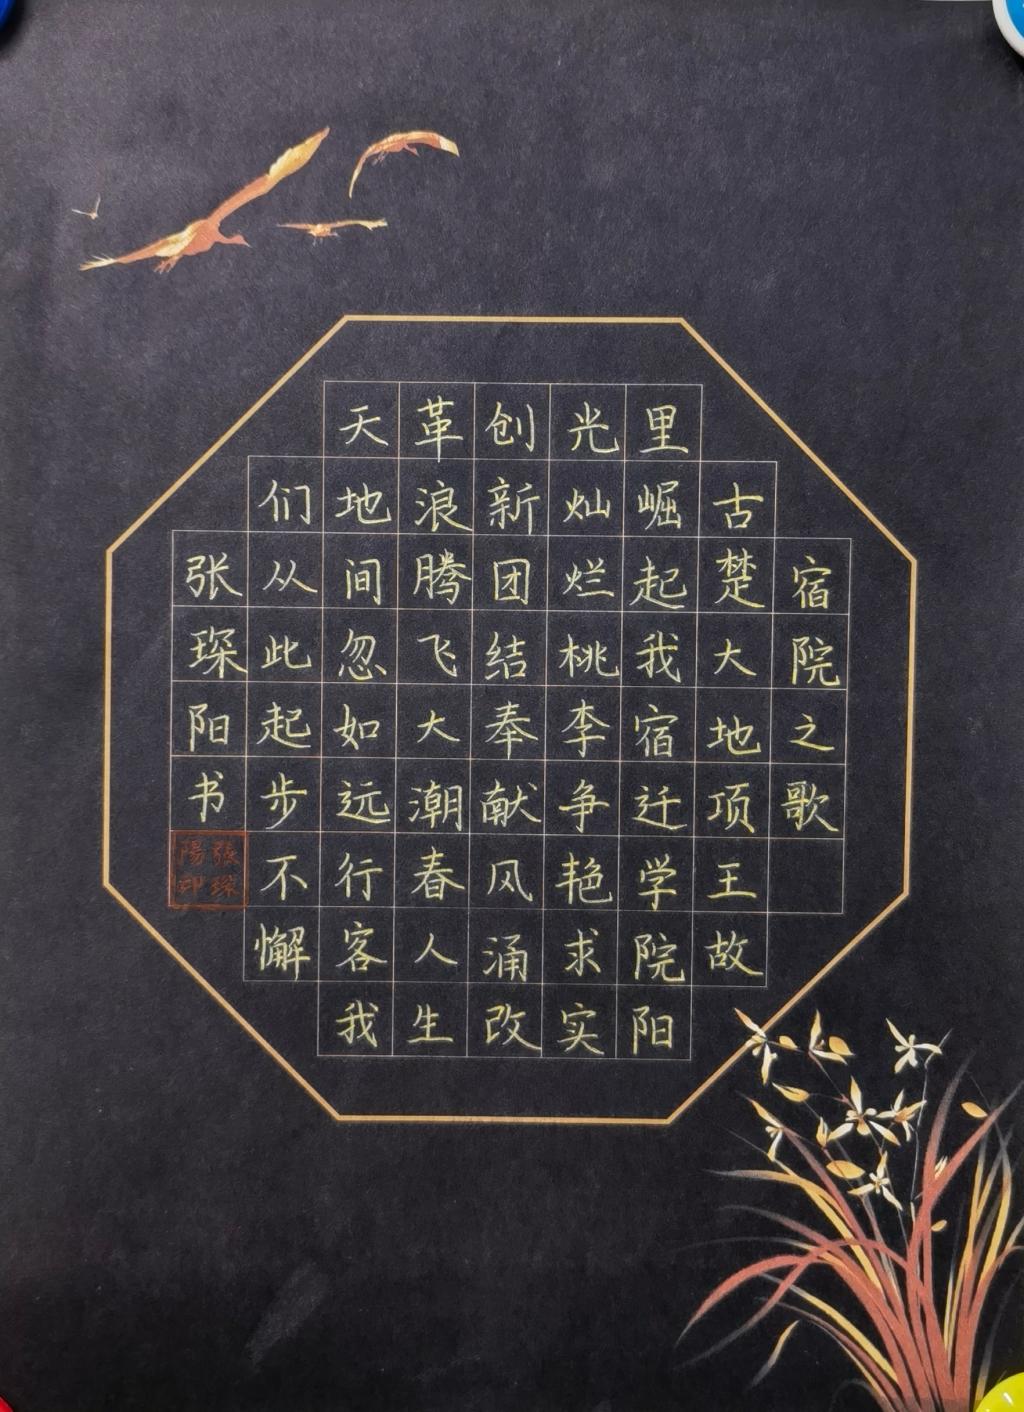 宿院之歌
古楚大地项王故
里崛起我宿迁学院阳
光灿烂桃李争艳求实
创新团结奉献风涌改
革浪腾飞大潮春人生
天地间忽如远行客我
们从此起步不懈
张琛阳书
張琛
陽印